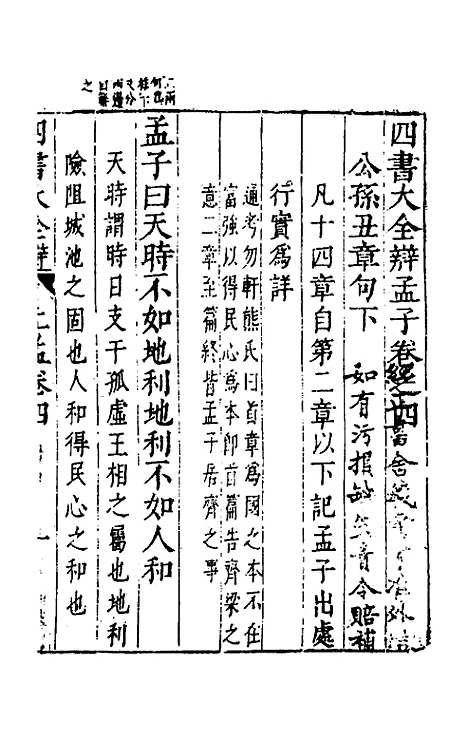 四書大全辯孟子卷之四
公孫丑章句下
如有污損缺失責令賠補
凡十四章自第二章以下記孟子出處
行實為詳
通考勿軒熊氏曰首章為國之本不在
富強以得民心為本即首篇告齊梁之
意二章至篇終皆孟子居齊之事
孟子曰天時不如地利地利不如人和
天時謂時日支干孤虛王相之屬也地利
險阻城池之固也人和得民心之和也
四書大全辯 上孟卷四